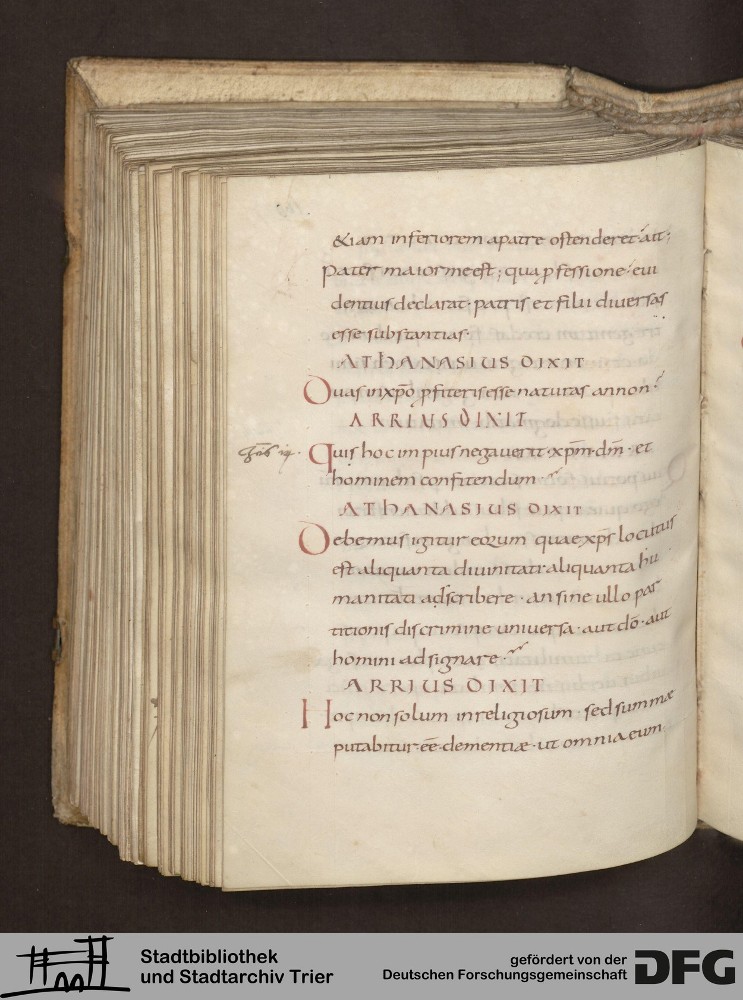 &iam inferiorem apatre ostenderet· ait;
Pater maior me est; qua p̱fessione· evi
dentius declarat· patris et filii diversas
esse substantias·
ATHANASIUS DIXIT
Duas in xp̄o p̱fiteris esse naturas annon·
ARRIUS DIXIT
Quis hoc impius negaverit· xp̄m· dm̄· et
hominem confitendum·
ATHANASIUS DIXIT
Debemus igitur eorum quae xp̄s locutus
est aliquanta divinitati aliquanta hu
manitati adscribere· an sine ullo par
titionis discrimine universa· aut dō· aut
homini adsignare·
ARRIUS DIXIT
Hoc non solum inreligiosum· sed summæ
putabitur· eē· dementiæ· ut omnia eum
Stadtbibliothek
und Stadtarchiv Trier
gefördert von der
Deutschen Forschungsgemeinschaft
DFG